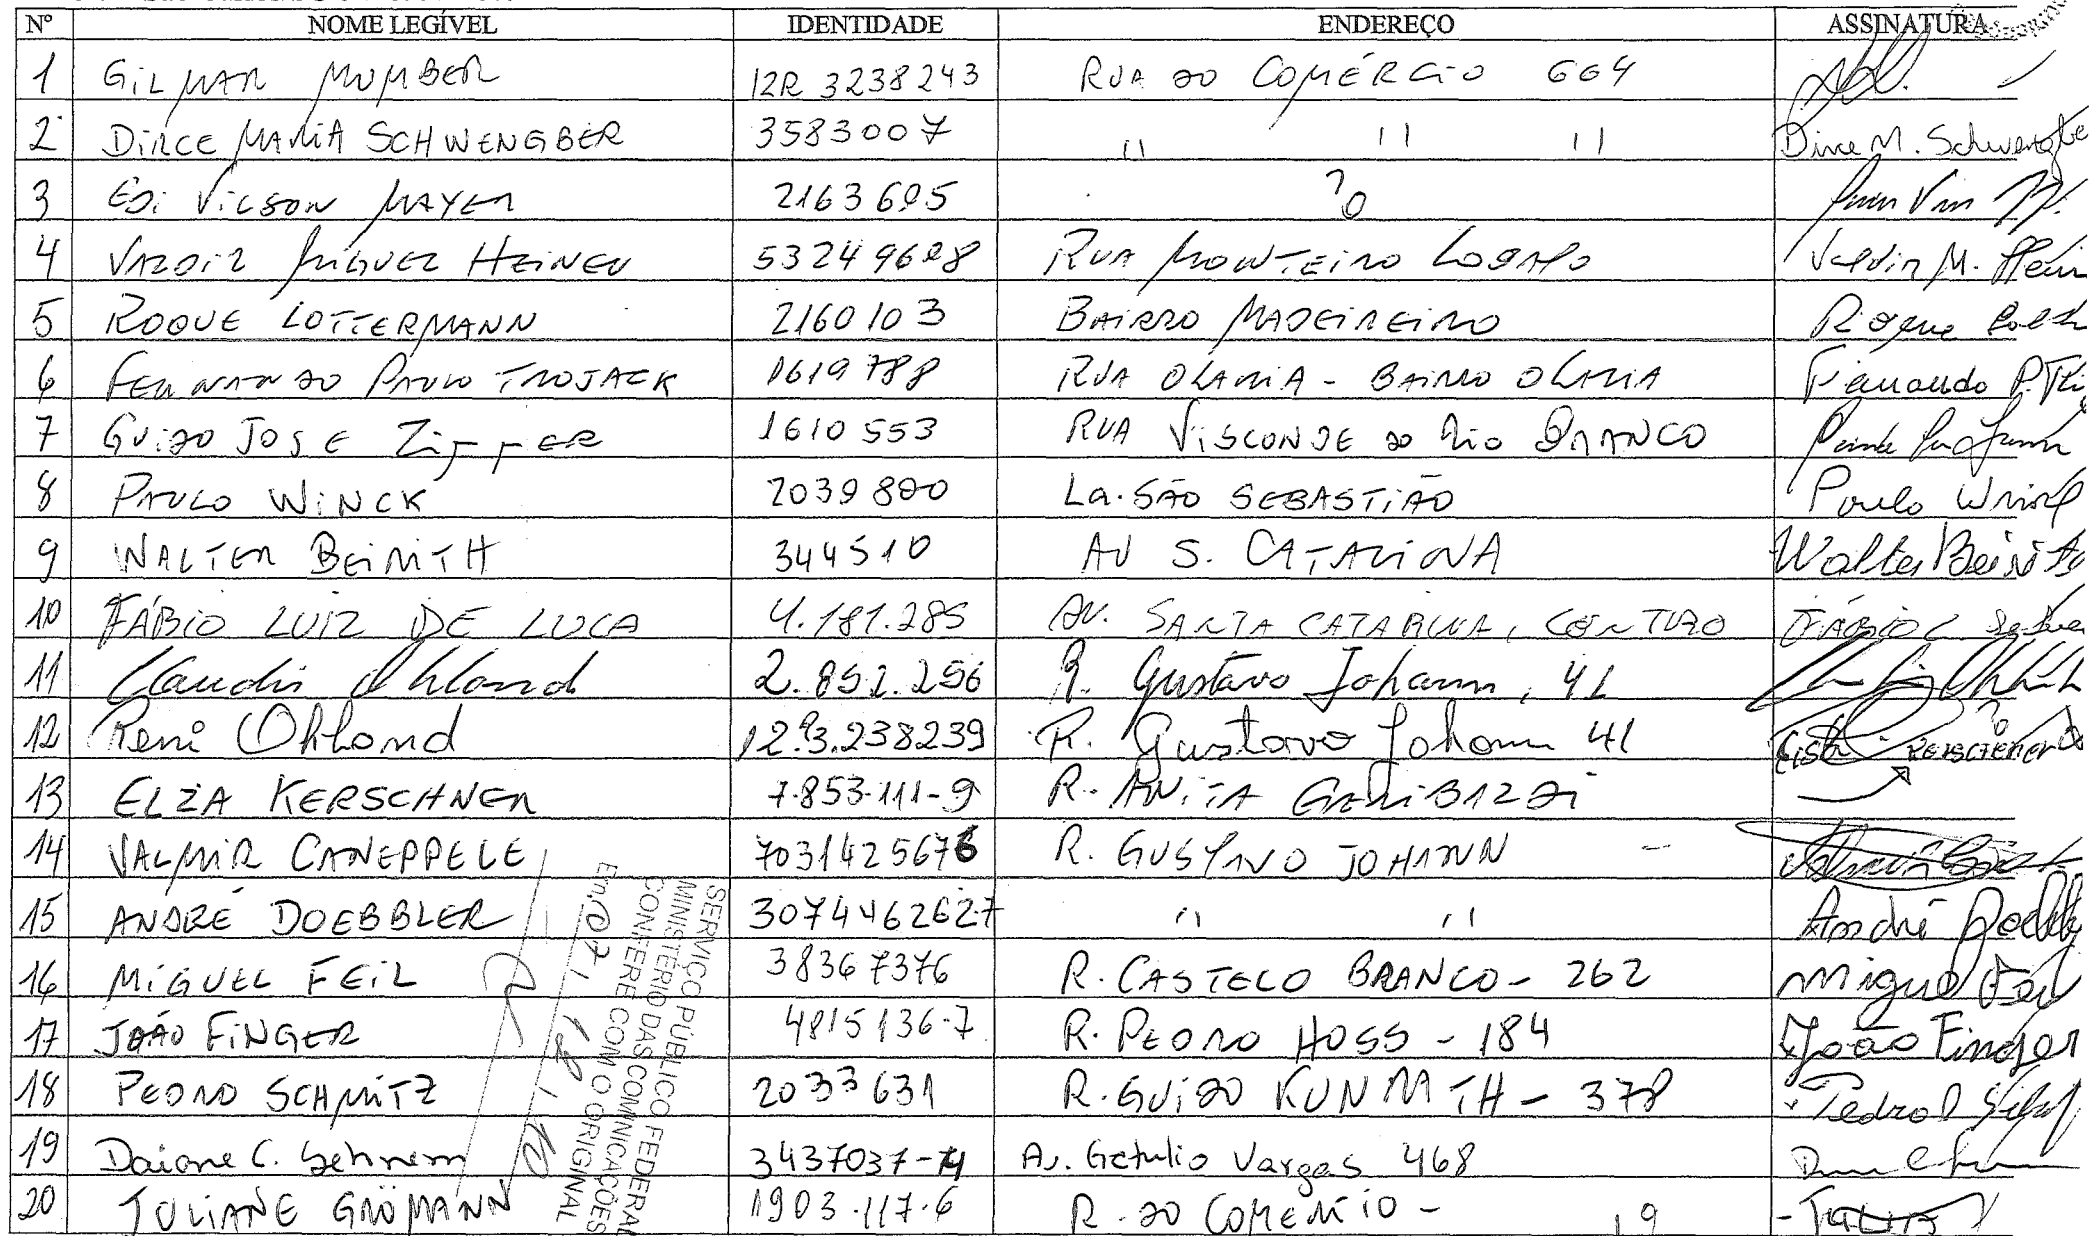 Nº NOME LEGÍVEL IDENTIDADE ENDEREÇO ASSINATURA
1 GILMAR MUMBER 12R 3238243 RUA DO COMÉRCIO 664
2 DIRCE MARIA SCHWENGBER 3583007 " " " Dirce M. Schwengber
3 EDI VILSON MAYER 2163695 ?
4 VALDIR MIGUEL HEINEN 53249628 RUA MONTEIRO LOBATO Valdir M. Hein
5 ROQUE LOTTERMANN 2160103 BAIRRO MADEIREIRO Roque
6 FERNANDO PAULO TROJACK 1619788 RUA OLARIA - BAIRRO OLARIA Fernando P.
7 GUIDO JOSE ZIPPER 1610553 RUA VISCONDE DO RIO BRANCO
8 PAULO WINCK 2039800 LA. SÃO SEBASTIÃO Paulo Winck
9 WALTER BEIRITH 344510 AV S. CATARINA Walter Beirith
10 FÁBIO LUIZ DE LUCA 4.181.285 AV. SANTA CATARINA, CENTRO FÁBIO L. de Luca
11 Claudir Ohlond 2.852.256 R. Gustavo Johann, 41
12 Reni Ohlond 12.R3.238239 R. Gustavo Johann 41
13 ELZA KERSCHNER 7.853.111-9 R. ANITA GARIBALDI
14 VALMIR CANEPPELE 7031425676 R. GUSTAVO JOHANN -
15 ANDRÉ DOEBBLER 3074462627 " " André
16 MIGUEL FEIL 38367376 R. CASTELO BRANCO - 262 Miguel Feil
17 JOÃO FINGER 4815136-7 R. PEDRO HOSS - 184 João Finger
18 PEDRO SCHMITZ 2033631 R. GUIDO KUNRATH - 378 Pedro
19 Daiane C. Sehnem 3437037-4 Av. Getulio Vargas 468
20 JULIANE GRÖMANN 1903.117.6 R. DO COMÉRCIO -
SERVIÇO PÚBLICO FEDERAL
MINISTÉRIO DAS COMUNICAÇÕES
CONFERE COM O ORIGINAL
Em, 07 / 12 / 10